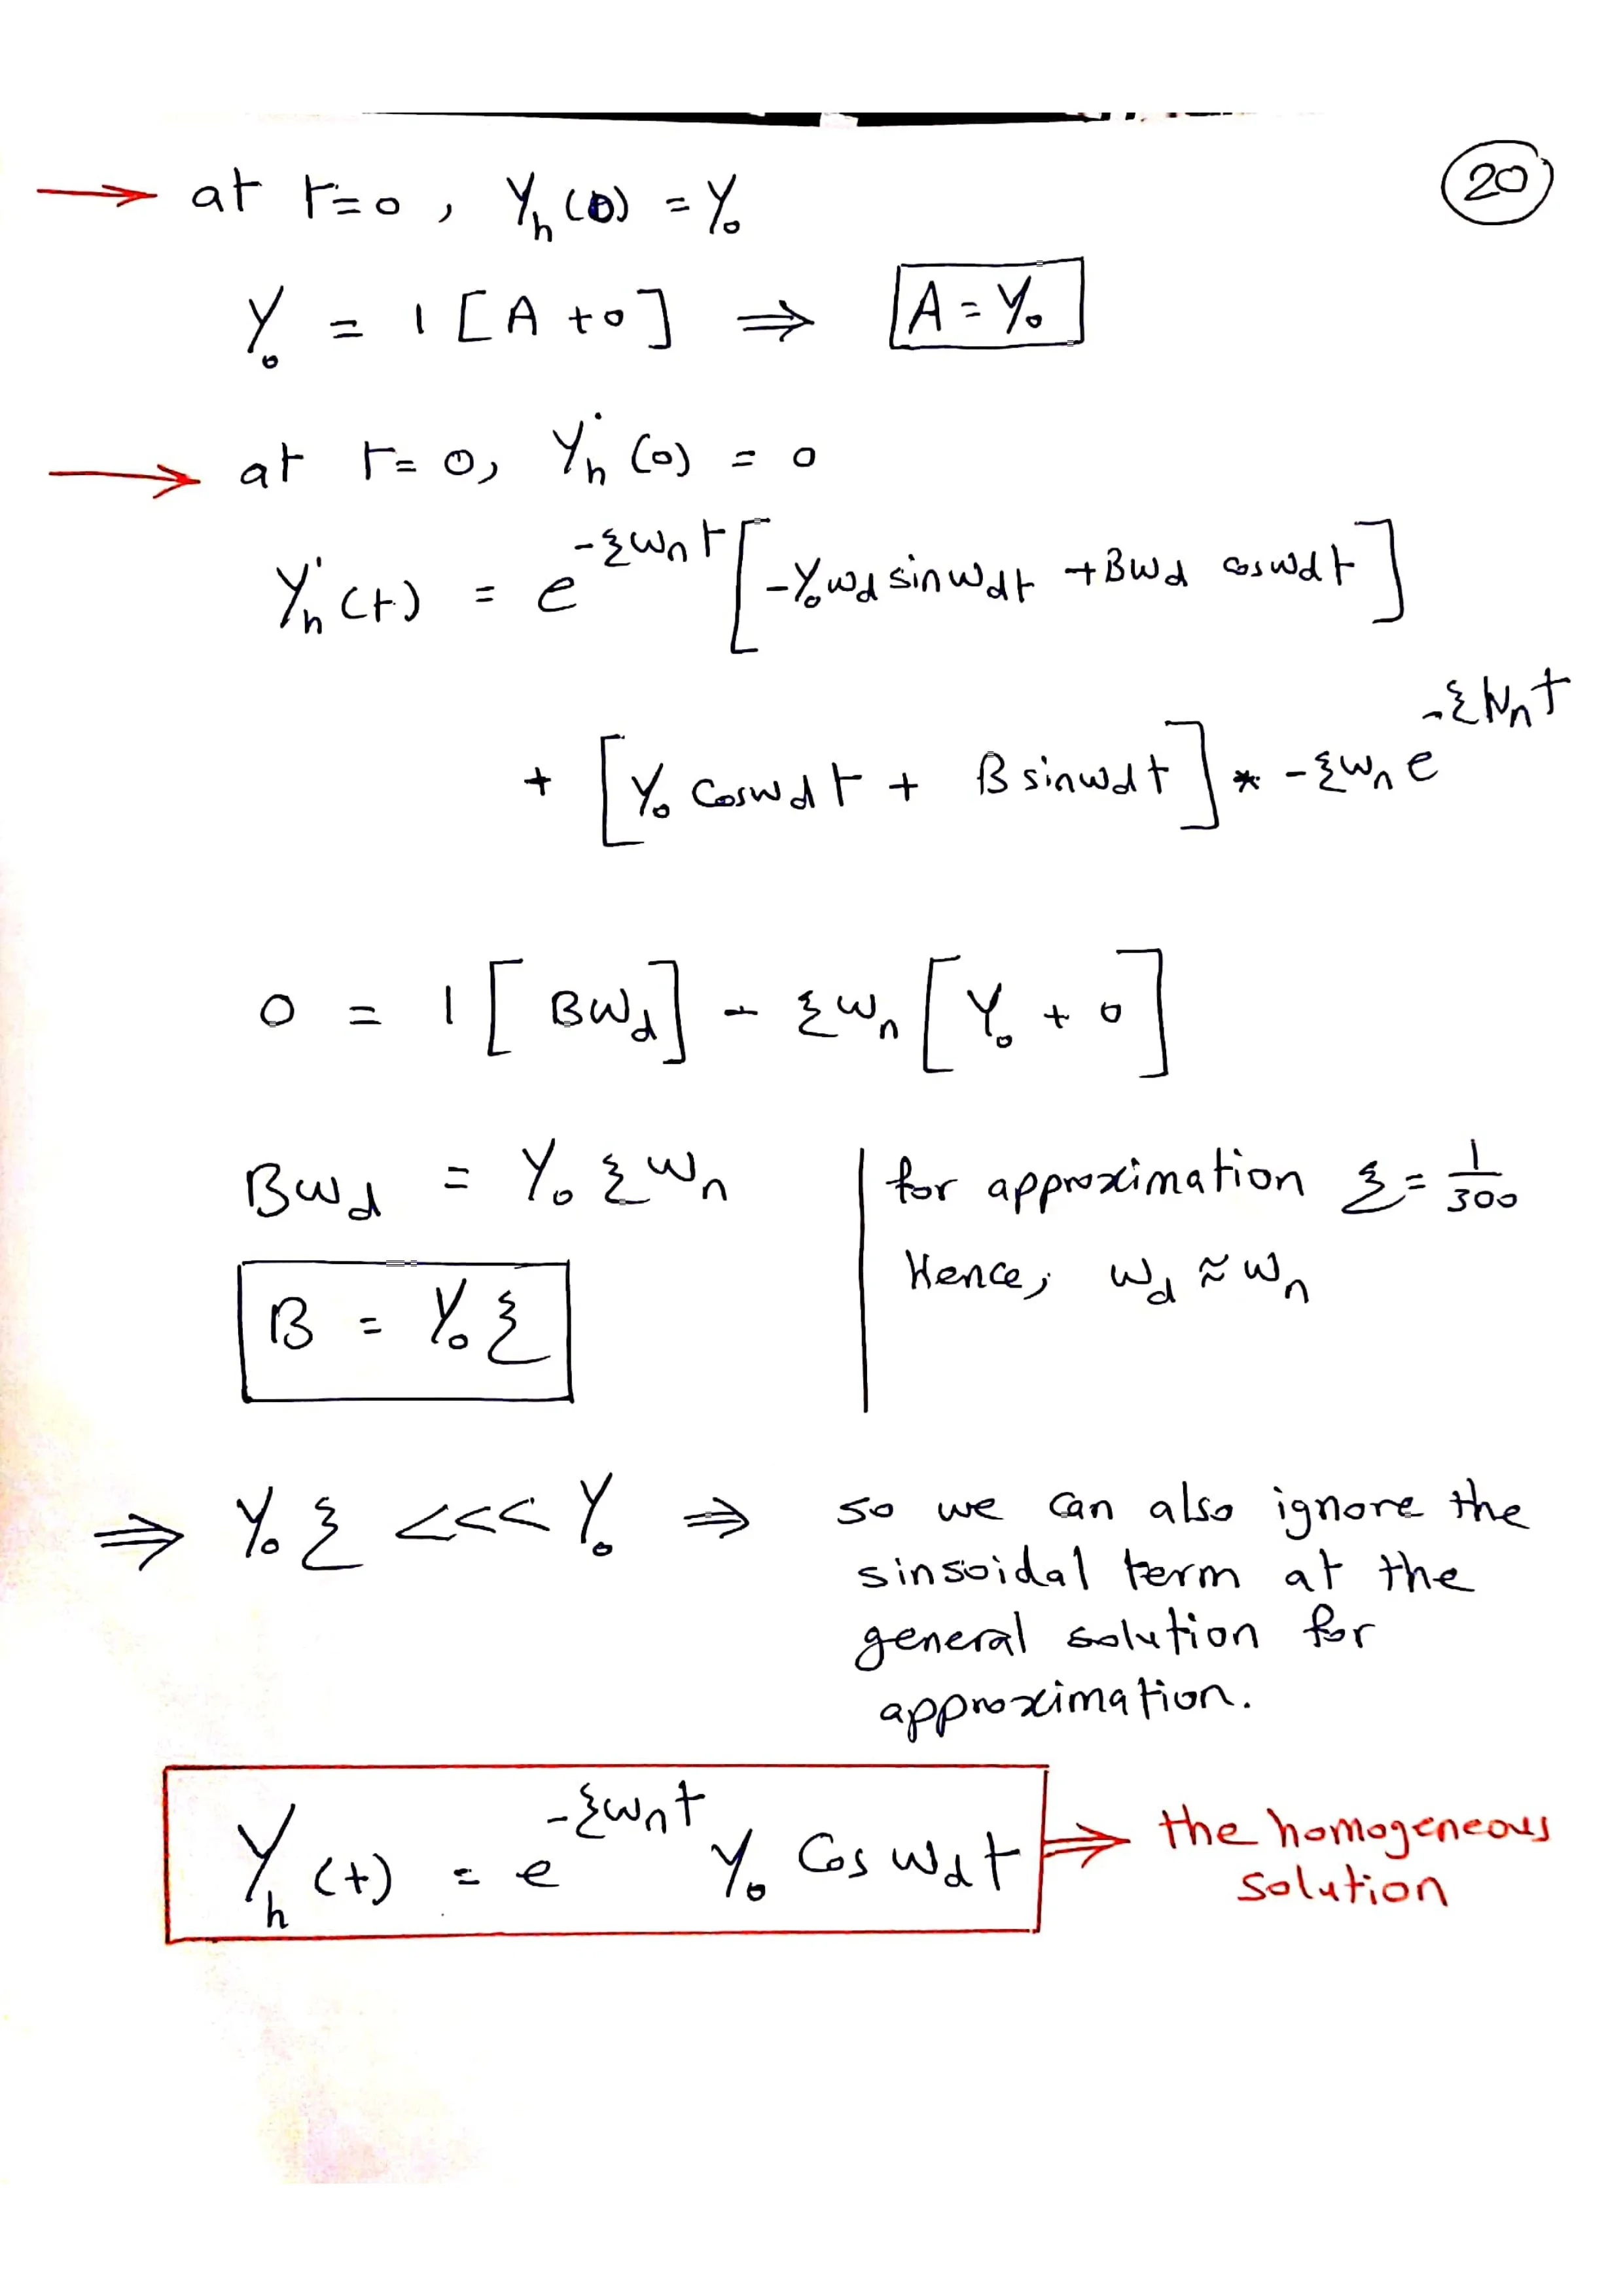 20
→ at t=0, Yₕ(0) = Y₀
Y₀ = 1 [A + 0] ⇒ A = Y₀
→ at t=0, Ẏₕ(0) = 0
Ẏₕ(t) = e^(-ξωₙt) [-Y₀ω_d sin ω_dt + Bω_d cos ω_dt]
+ [Y₀ cos ω_dt + B sin ω_dt] * -ξωₙ e^(-ξωₙt)
0 = 1 [Bω_d] - ξωₙ [Y₀ + 0]
Bω_d = Y₀ ξωₙ
B = Y₀ ξ
for approximation ξ = 1/300
Hence, ω_d ≈ ωₙ
⇒ Y₀ ξ <<< Y₀ ⇒ so we can also ignore the
sinsoidal term at the
general solution for
approximation.
Yₕ(t) = e^(-ξωₙt) Y₀ Cos ω_dt ⇒ the homogeneous
solution